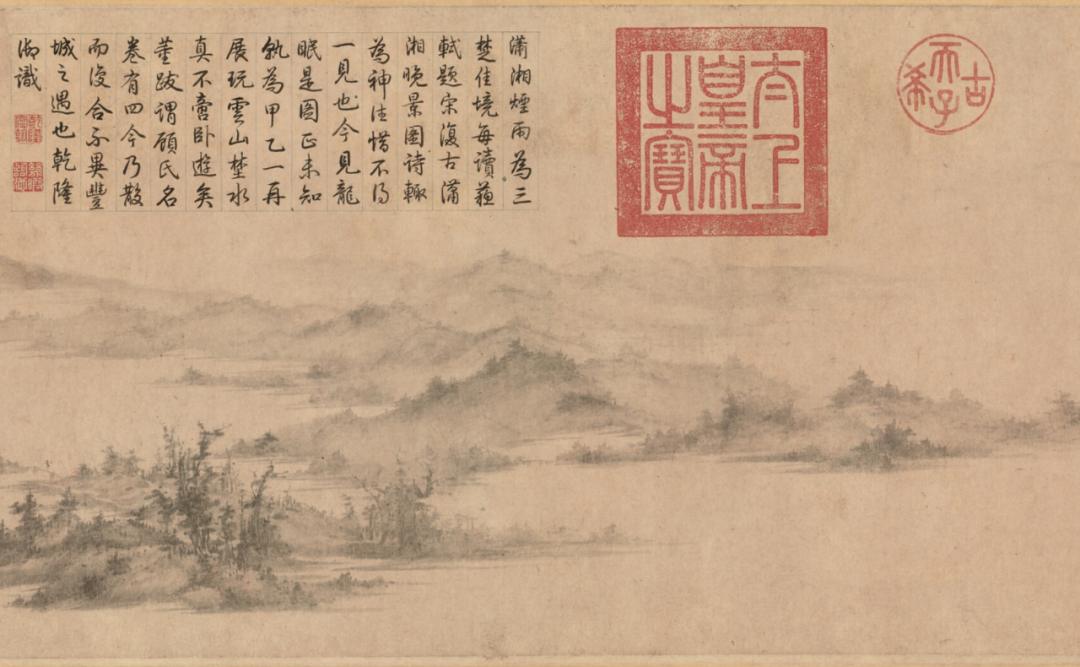 古希天子
太上皇帝之寶
瀟湘煙雨為三
楚佳境每讀蘓
軾題宋復古瀟
湘晚景圖詩輙
為神往惜不得
一見也今見龍
眠是圖正未知
孰為甲乙一再
展玩雲山埜水
真不啻卧遊矣
董跋謂顧氏名
卷有四今乃散
而復合不異豐
城之遇也乾隆
御識